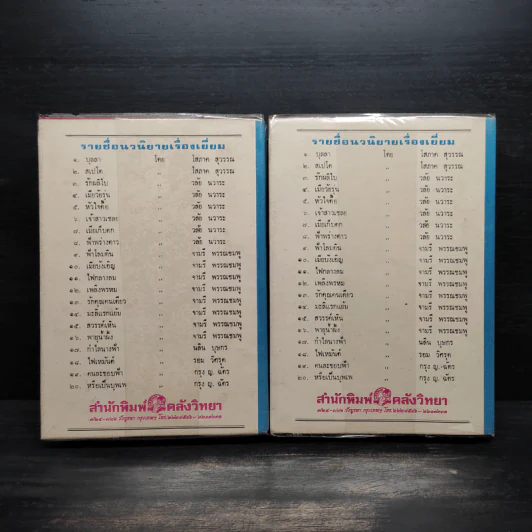 รายชื่อนวนิยายเรื่องเยี่ยม
๑. บุตลา โดย โสภาค สุวรรณ
๒. สเปโต „ โสภาค สุวรรณ
๓. รักผลิใบ „ วลัย นวาระ
๔. เมียวัยรุ่น „ วลัย นวาระ
๕. หัวใจดื้อ „ วลัย นวาระ
๖. เจ้าสาวเชลย „ วลัย นวาระ
๗. เมียเก็บตก „ วลัย นวาระ
๘. ฟ้าพร่างดาว „ วลัย นวาระ
๙. ฟ้าโลมดิน „ จามรี พรรณชมพู
๑๐. เมียบังเอิญ „ จามรี พรรณชมพู
๑๑. ไฟกลางลม „ จามรี พรรณชมพู
๑๒. เพลิงพรหม „ จามรี พรรณชมพู
๑๓. รักคุณคนเดียว „ จามรี พรรณชมพู
๑๔. มะลิแรกแย้ม „ จามรี พรรณชมพู
๑๕. สวรรค์เห็น „ จามรี พรรณชมพู
๑๖. พายุน้ำผึ้ง „ จามรี พรรณชมพู
๑๗. กำไลนางฟ้า „ นลิน บุษกร
๑๘. ไฟเหมันต์ „ รอย
๑๙. คนละขอบฟ้า „ กรุง ญ. ฉัตร
๒๐. หรือเป็นบุพเพ „ กรุง ญ. ฉัตร
สำนักพิมพ์คลังวิทยา
รายชื่อนวนิยายเรื่องเยี่ยม
๑. บุตลา โดย โสภาค สุวรรณ
๒. สเปโต „ โสภาค สุวรรณ
๓. รักผลิใบ „ วลัย นวาระ
๔. เมียวัยรุ่น „ วลัย นวาระ
๕. หัวใจดื้อ „ วลัย นวาระ
๖. เจ้าสาวเชลย „ วลัย นวาระ
๗. เมียเก็บตก „ วลัย นวาระ
๘. ฟ้าพร่างดาว „ วลัย นวาระ
๙. ฟ้าโลมดิน „ จามรี พรรณชมพู
๑๐. เมียบังเอิญ „ จามรี พรรณชมพู
๑๑. ไฟกลางลม „ จามรี พรรณชมพู
๑๒. เพลิงพรหม „ จามรี พรรณชมพู
๑๓. รักคุณคนเดียว „ จามรี พรรณชมพู
๑๔. มะลิแรกแย้ม „ จามรี พรรณชมพู
๑๕. สวรรค์เห็น „ จามรี พรรณชมพู
๑๖. พายุน้ำผึ้ง „ จามรี พรรณชมพู
๑๗. กำไลนางฟ้า „ นลิน บุษกร
๑๘. ไฟเหมันต์ „ รอย
๑๙. คนละขอบฟ้า „ กรุง ญ. ฉัตร
๒๐. หรือเป็นบุพเพ „ กรุง ญ. ฉัตร
สำนักพิมพ์คลังวิทยา